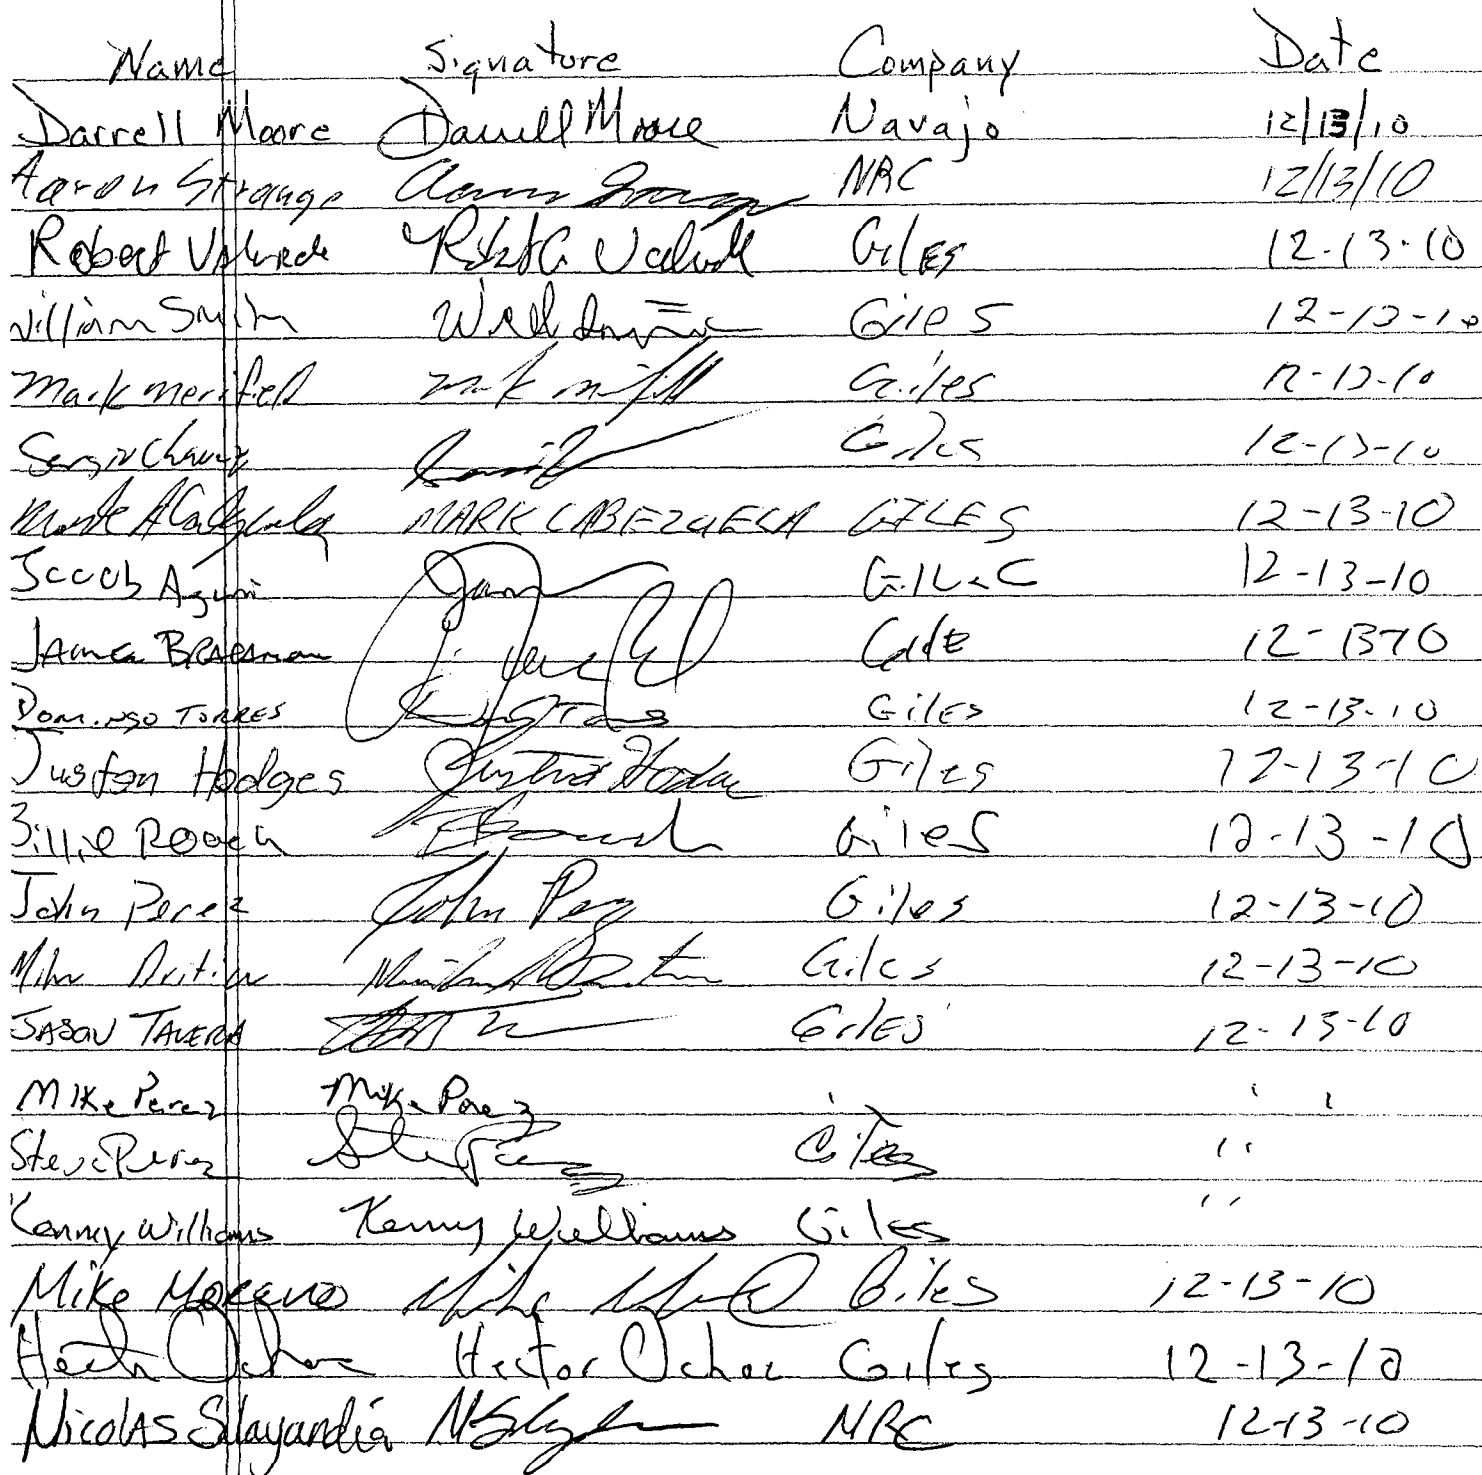 Name Signature Company Date
Darrell Moore Darrell Moore Navajo 12/13/10
Aaron Strange Aaron Strange NRC 12/13/10
Robert Valverde Robt G Valverde Giles 12-13-10
William Smith Will Giles 12-13-10
Mark Merifield Giles 12-13-10
Sergio Chavez Giles 12-13-10
Mark A Cabezuela MARK CABEZUELA GILES 12-13-10
Jacob 12-13-10
James 12-1310
Domingo Torres Torres Giles 12-13-10
Juston Hodges Juston Hodges Giles 12-13-10
Billie Roach Roach Giles 12-13-10
John Perez John Perez Giles 12-13-10
Mike Giles 12-13-10
JASON TAVERA GilES 12-13-10
Mike Perez Mike Perez ' ' '
Steve Perez Steve Perez Giles ''
Kenney Williams Kenny Williams Giles ''
Mike Moreno Mike Giles 12-13-10
Hector Ochoa Hector Ochoa Giles 12-13-10
NicolAS Silayandia NRC 12-13-10